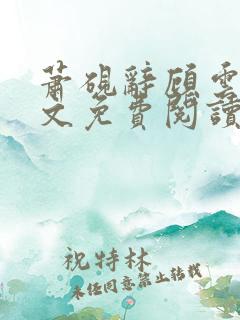 萧砚辞顾云
文免費閱讀
祝特林
未经同意禁止转载